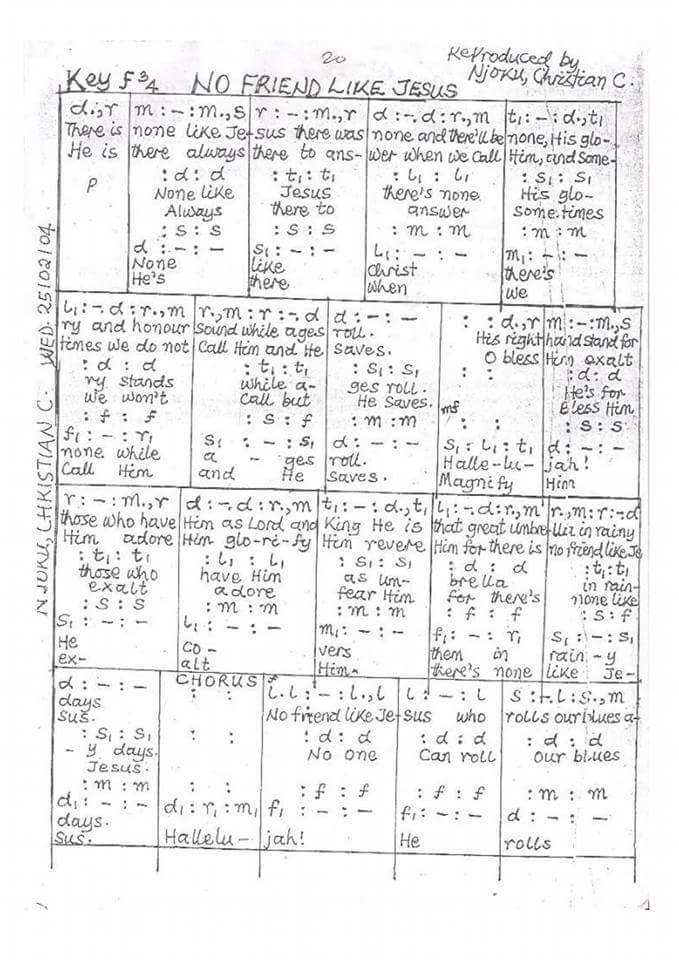 20
Reproduced by
Njoku, Christian C.
Key F 3/4 NO FRIEND LIKE JESUS
d.,r m : – : m., s r : – : m., r d : –. d : r., m t₁ : – : d., t₁
There is none like Je- sus there was none and there'll be none, His glo-
He is there always there to ans- wer when we call Him, and some-
: d : d : t₁ : t₁ : l₁ : l₁ : s₁ : s₁
P None like Jesus there's none His glo-
Always there to answer sometimes
: s : s : s : s : m : m : m : m
d : – : – s₁ : – : – l₁ : – : – m₁ : – : –
None like Christ there's
He's there when we
l₁ : –. d : r., m r., m : r : –. d d : – : – : : d., r m : – : m., s
ry and honour Sound while ages roll. His right hand stand for
times we do not Call Him and He saves. O bless Him exalt
: d : d : t₁ : t₁ : s₁ : s₁ : : : d : d
ry stands while a- ges roll. He's for
we won't call but He saves. Bless Him
: f : f : s : f : m : m mf : : : s : s
f₁ : – : r₁ s₁ : – : s₁ d : – : – s₁ : l₁ : t₁ d : – : –
none while a - ges roll. Halle-lu- jah!
Call Him and He saves. Magnify Him
r : – : m., r d : –. d : r., m t₁ : – : d., t₁ l₁ : –. d : r., m r., m : r : –. d
those who have Him as Lord and King He is that great umbre- lla in rainy
Him adore Him glo-ri-fy Him revere Him for there is no friend like Je
: t₁ : t₁ : l₁ : l₁ : s₁ : s₁ : d : d : t₁ : t₁
those who have Him as um- brella in rain-
exalt adore fear Him for there's none like
: s : s : m : m : m : m : f : f : s : f
s₁ : – : – l₁ : – : – m₁ : – : – f₁ : – : r₁ s₁ : – : s₁
He co- vers them in rain - y
ex- alt Him- there's none like Je-
CHORUS
d : – : – : : l. l : – : l., l l : – : l s : –. l : s., m
days No friend like Je- sus who rolls our blues a-
sus.
: s₁ : s₁ : : : d : d : d : d : d : d
- y days. No One Can roll Our blues
Jesus.
: m : m : : : f : f : f : f : m : m
d₁ : – : – d₁ : r₁ : m₁ f₁ : – : – f₁ : – : – d : – : –
days. Hallelu- jah! He rolls
sus.
NJOKU, CHRISTIAN C. WED. 25/02/04